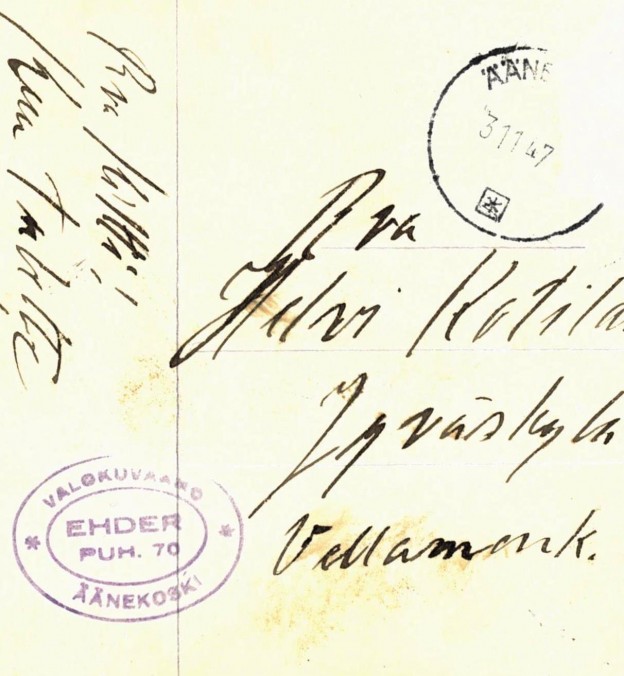 ÄÄNE
31 1 47
Rva
Helvi Kotila
Jyväskylä
Vellamonk.
VALOKUVAAMO
EHDER
PUH. 70
ÄÄNEKOSKI
Rva